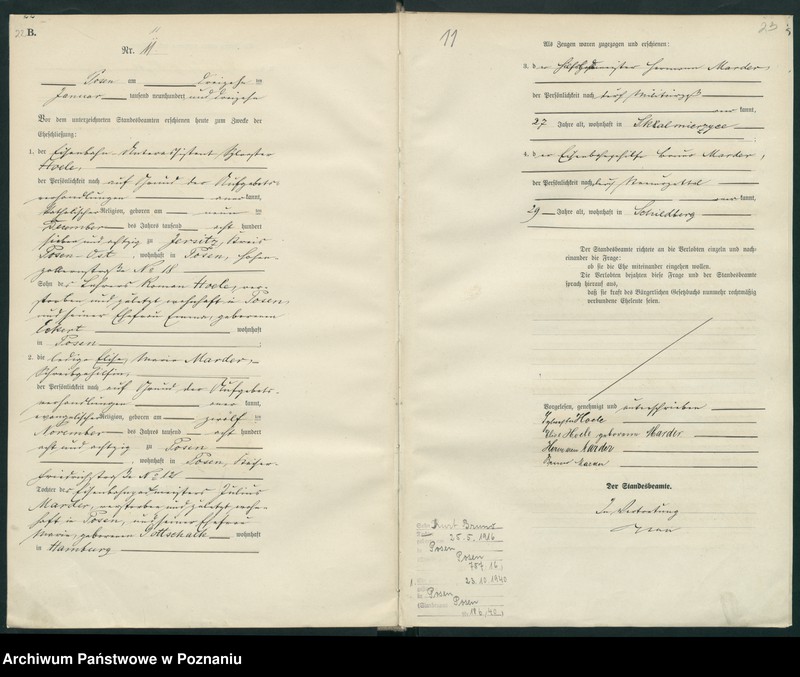 B.
Nr. 11
Posen am dreizehn ten
Januar tausend neunhundert und dreizehn
Vor dem unterzeichneten Standesbeamten erschienen heute zum Zwecke der
Eheschließung:
1. der Eisenbahn-Unterassistent Sylvester
Hoele,
der Persönlichkeit nach auf Grund der Aufgebots-
verhandlungen anerkannt,
katholischer Religion, geboren am neun ten
Dezember des Jahres tausend acht hundert
sieben und achtzig zu Jersitz, Kreis
Posen-Ost, wohnhaft in Posen, Hohen-
zollernstraße No 18
Sohn des Lehrers Roman Hoele, ver-
storben und zuletzt wohnhaft in Posen,
und seiner Ehefrau Emma, geborenen
Eckert wohnhaft
in Posen
2. die ledige Elise, Maria Marder,
Schreibgehilfin,
der Persönlichkeit nach auf Grund der Aufgebots-
verhandlungen anerkannt,
evangelischer Religion, geboren am zwölf ten
November des Jahres tausend acht hundert
acht und achtzig zu Posen
, wohnhaft in Posen, Kaiser-
Friedrichstraße No 12
Tochter des Julius
Marder, verstorben und zuletzt wohn-
haft in Posen, und seiner Ehefrau
Marie, geborenen Gottschalk wohnhaft
in Hamburg
11
23
Als Zeugen waren zugezogen und erschienen:
3. der Hermann Marder,
der Persönlichkeit nach durch Militärpaß
anerkannt,
27 Jahre alt, wohnhaft in Skalmierzyce
4. der Eisenbahngehilfe Bruno Marder,
der Persönlichkeit nach durch
anerkannt,
29 Jahre alt, wohnhaft in Schildberg
Der Standesbeamte richtete an die Verlobten einzeln und nach-
einander die Frage:
ob sie die Ehe miteinander eingehen wollen.
Die Verlobten bejahten diese Frage und der Standesbeamte
sprach hierauf aus,
daß sie kraft des Bürgerlichen Gesetzbuchs nunmehr rechtmäßig
verbundene Eheleute seien.
Vorgelesen, genehmigt und unterschrieben
Sylvester Hoele
Elise Hoele geborene Marder
Hermann Marder
Bruno Marder
Der Standesbeamte.
In Vertretung
Kurt Bruno
25. 5. 1916
Posen
Posen
757. 16
1.
23. 10. 1940
Posen
Posen
Archiwum Państwowe w Poznaniu